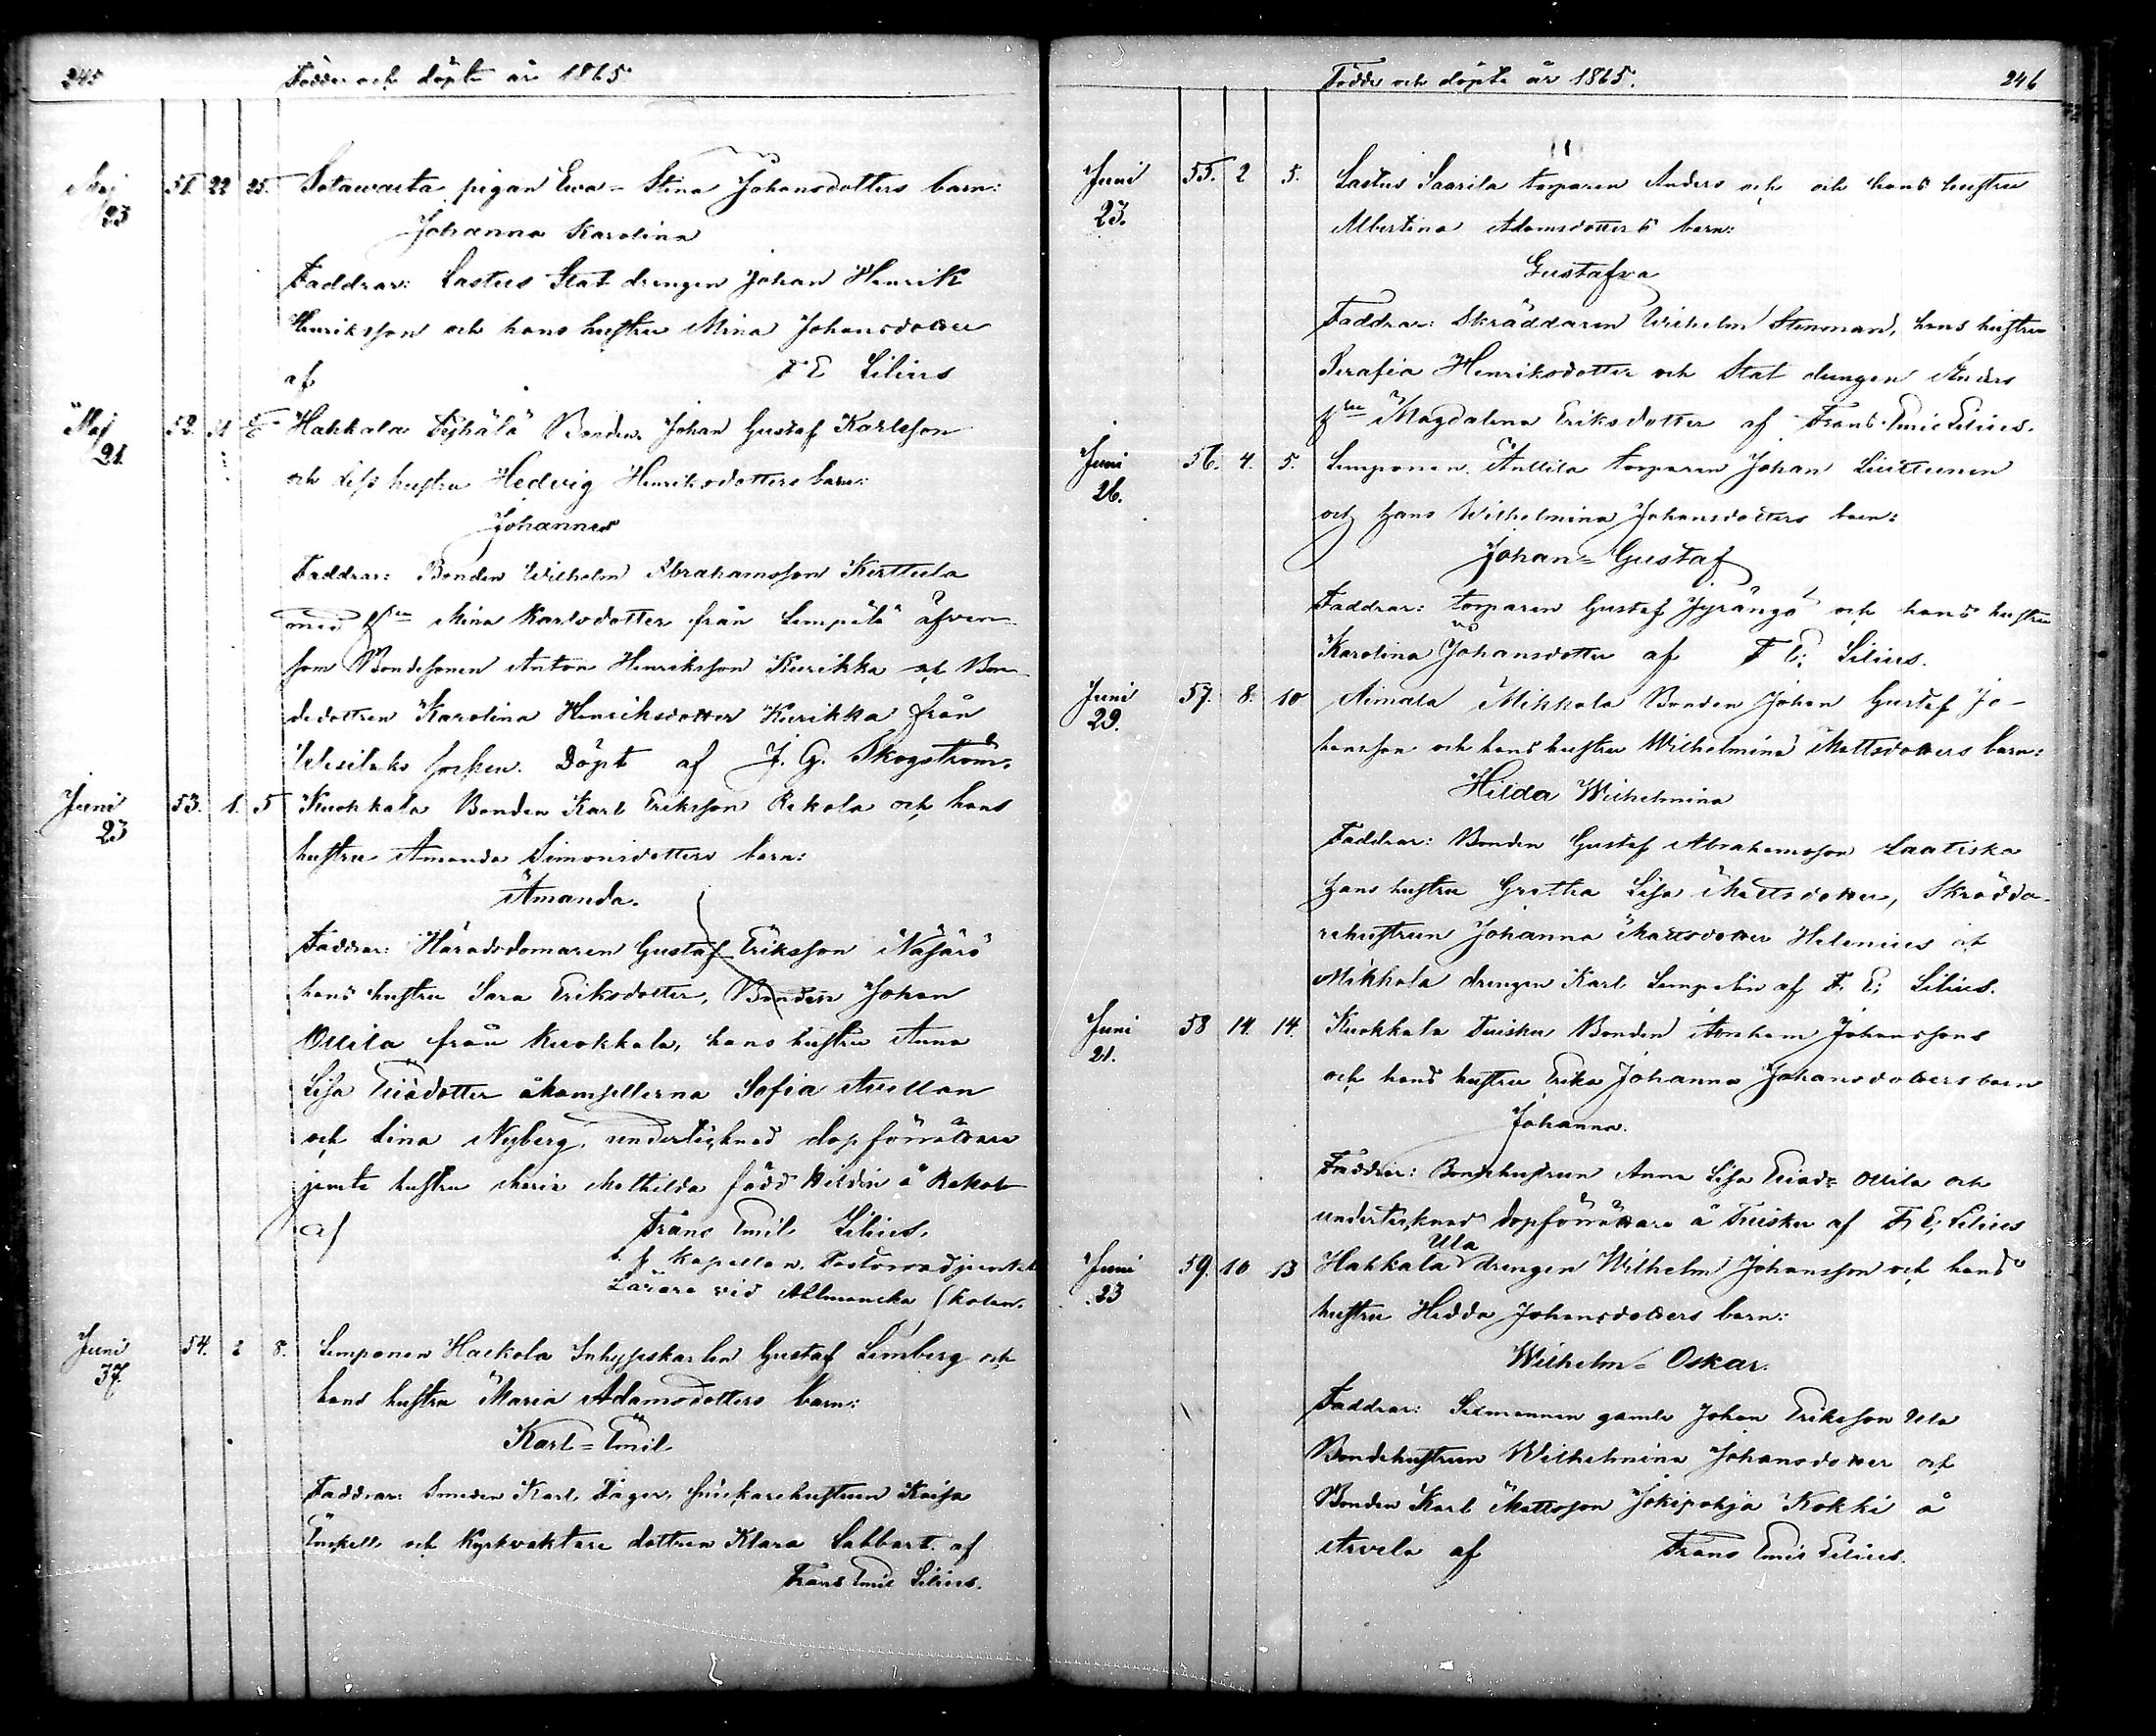 245
Födde och döpte år 1865.
Maj 51. 22 25. Sotawarta pigan Ewa-Stina Johansdotters barn:
23
Johanna Karolina
Faddrar: Lastus Stat drengen Johan Henrik
Henriksson och hans hustru Mina Johansdotter
af F E Lilius
Maj 52. 21 Hakkala Böndn Johan Gustaf Karlsson
21
och dess hustru Hedvig Henriksdotters barn:
Johannes
Faddrar: Bonden Wilhelm Abrahamsson Kerttula
med Mina Karlsdotter från Lempelä äfven
som Bondesonen Anton Henriksson Kurikka och Bon
dedottren Karolina Henriksdotter Kurikka från
Wesilaks socken. Döpt af J. G. Skogström.
Juni 53. 1. 5 Kuokkala Bonden Karl Eriksson Rekola och hans
23
hustru Amanda Simonsdotters barn:
Amanda.
Faddrar: Häradsdomaren Gustaf Eriksson Näsärö
hans hustru Sara Eriksdotter, Bonden Johan
Ollila från Kuokkala, hans hustru Anna
Lisa Eriksdotter mamsellerna Sofia
och Lina Nyberg, undertecknad dopförrättare
jemte hustru Maria Mathilda född å
af Frans Emil Lilius.
t. f. Kapellan. Pastorsadjunkt
Lärare vid Allmänska skolan.
Juni 54. 2 8. Lemponen Haekola Inhyseskarlen Gustaf Limberg och
37.
hans hustru Maria Adamsdotters barn:
Karl-Emil
Faddrar: Smeden Karl Fager, snickarehustrun Kaisa
Enckell och Kyrkvaktare dottren Klara Sabbart af
Frans Emil Lilius.
Födde och döpte år 1865.
246
Juni 55. 2 5. Lastus Saarila torparen Anders och och hans hustru
23.
Albertina Adamsdotters barn:
Gustafva
Faddrar: Skräddaren Wilhelm Stenman, hans hustru
Serafia Henriksdotter och Stat drengen Anders
Magdalena Eriksdotter af Frans Emil Lilius.
Juni 56. 4. 5. Lemponen Anttila torparen Johan
26.
och hans Wilhelmina Johansdotters barn:
Johan-Gustaf
Faddrar: torparen Gustaf Jyrängö och hans hustru
Karolina Johansdotter af F E; Lilius.
Juni 57. 8. 10 Aimala Mikkola Bonden Johan Gustaf Jo-
29.
hansson och hans hustru Wilhelmina Mattsdotters barn:
Hilda Wilhelmina
Faddrar: Bonden Gustaf Abrahamsson Laatiska
hans hustru Gretha Lisa Mattsdotter, Skrädda-
rehustrun Johanna Mattsdotter Helenius och
Mikkola drengen Karl Lempelin af F. E; Lilius.
Juni 58 14. 14. Kuokkala Tuisku Bonden Abraham Johanssons
21.
och hans hustru Erika Johanna Johansdotters barn
Johanna.
Faddrar: Bondehustrun Anna Lisa Eriksd= Ollila och
undertecknad dopförrättare å Tuisku af F; E; Lilius
Juni 59. 10 13 Hakkala Ula drengen Wilhelm Johansson och hans
23
hustru Hedda Johansdotters barn:
Wilhelm-Oskar.
Faddrar: gamle Johan Eriksson Ula
Bondehustrun Wilhelmina Johansdotter och
Bonden Karl Mattsson Jokipohja Kokki å
Arvela af Frans Emil Lilius.